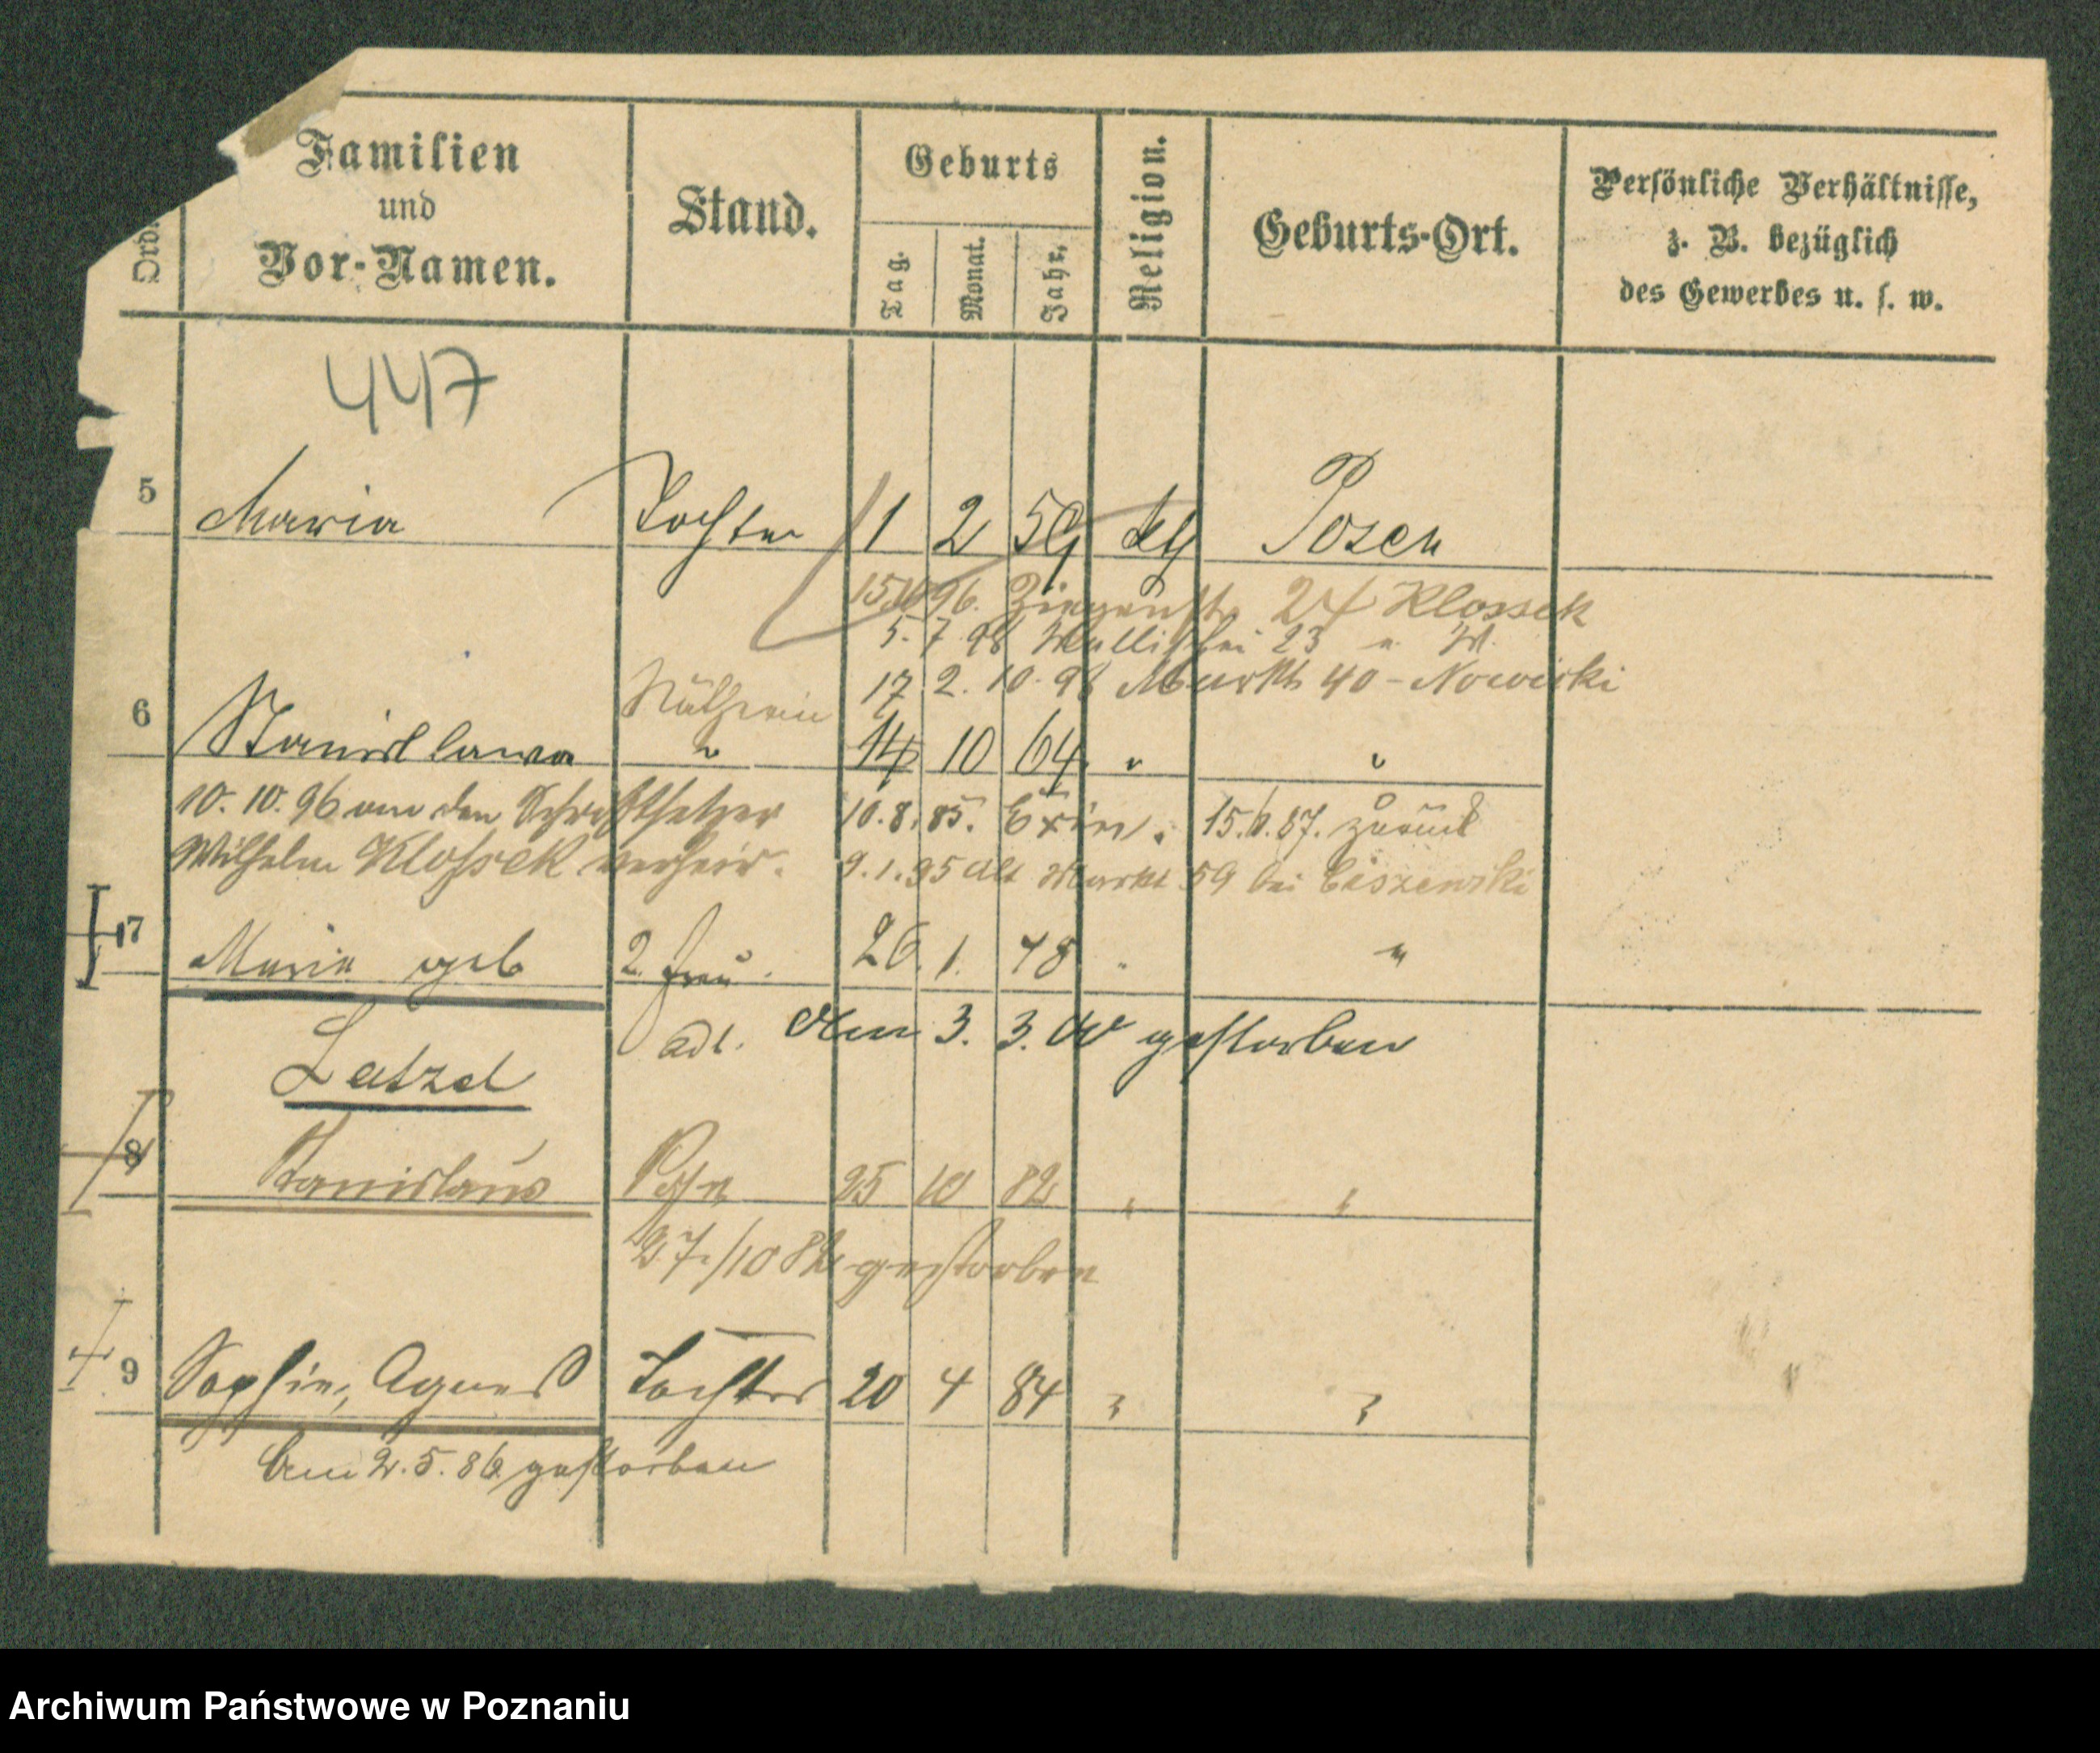 Familien
und
Vor-Namen.
Stand.
Geburts
Tag.
Monat.
Jahr.
Religion.
Geburts-Ort.
Persönliche Verhältnisse,
z. B. bezüglich
des Gewerbes u. s. w.
Ord.
447
5 Maria Tochter 1 2 59 kth Posen
15.10.96. Ziegenstr 24 Klossek
5. 7. 98 Wallischei 23 u. W.
17 2. 10. 98 Markt 40 - Nowicki
Näherin
6 Stanislawa " 14 10 64 " "
10. 10. 96 an den Schriftsetzer 10.8.85. Exin. 15.6.87. zurück
Wilhelm Klossek verheir. 9.1.95 Alt Markt 59 bei Ciszewski
7 Maria geb 2. Frau. 26. 1. 48 " "
adl. Am 3. 3. 00 gestorben
Latzel
8 Stanislaus Sohn 25 10 82 " "
27./10 82 gestorben
9 Sophie, Agnes Tochter 20 4 84 " "
Am 2.5.86 gestorben
Archiwum Państwowe w Poznaniu